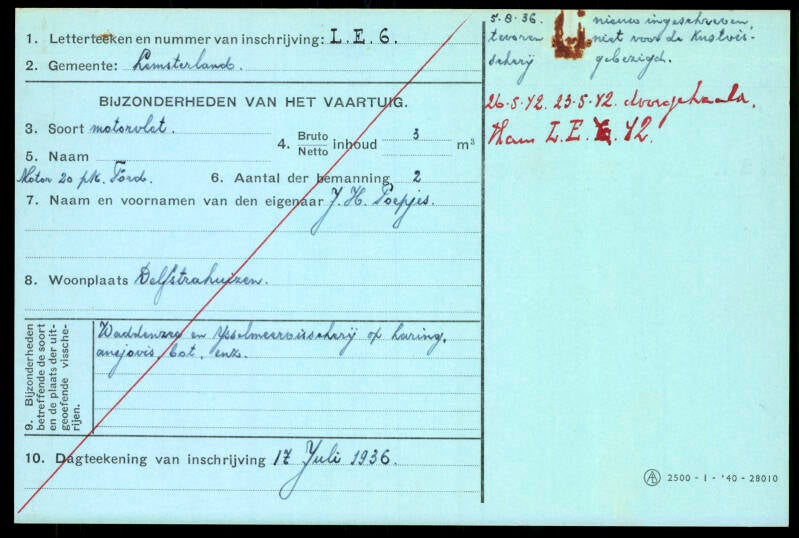 1. Letterteeken en nummer van inschrijving: L.E.6.
2. Gemeente: Lemsterland.
BIJZONDERHEDEN VAN HET VAARTUIG.
3. Soort motorvlet.
4. Bruto Netto inhoud 3 m³
5. Naam
Motor 20 pk. Ford.
6. Aantal der bemanning 2
7. Naam en voornamen van den eigenaar J. H. Poepjes.
8. Woonplaats Delfstrahuizen.
9. Bijzonderheden
betreffende de soort
en de plaats der uit-
geoefende vissche-
rijen.
Waddenzee en Ysselmeervisscherij op haring,
ansjovis, bot, enz.
10. Dagteekening van inschrijving 17 Juli 1936.
5.8.36. nieuw ingeschreven,
tevoren niet voor de Kustvis-
scherij gebezigd.
26.5.42. 23.5.42. doorgehaald.
Thans L.E. 42.
2500 - 1 - '40 - 28010